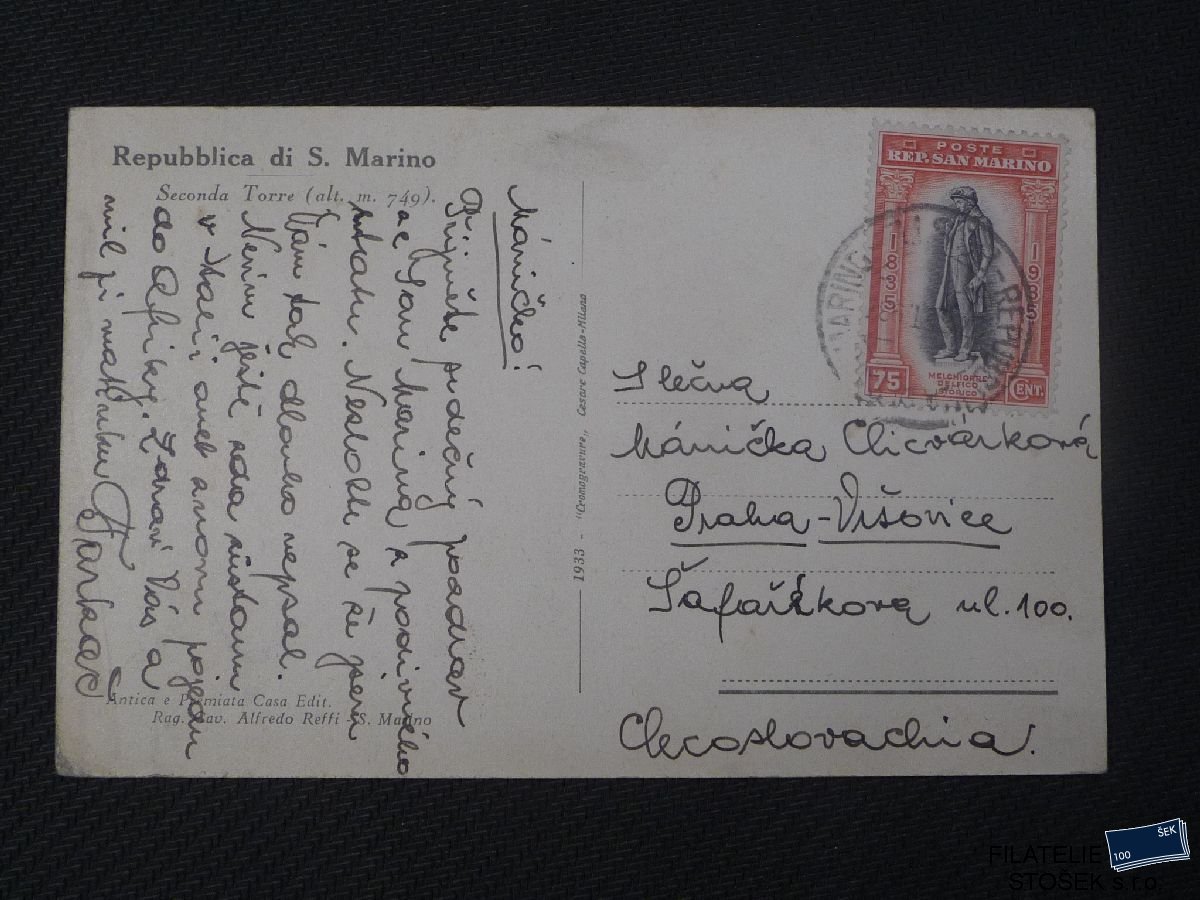 Repubblica di S. Marino
Seconda Torre (alt. m. 749).
Máničko!
Přijměte srdečný pozdrav
ze San Marina a podivného
státku. Nezlobte se že jsem
Vám tak dlouho nepsal.
Nevím ještě zda zůstanu
v Italii aneb znovu pojedu
do Afriky. Zdraví Vás a
mil pí matinku
1933 - "Cromogravure„ Cesare Capello-Milano
Antica e Premiata Casa Edit.
Rag. Cav. Alfredo Reffi - S. Marino
POSTE
REP. SAN MARINO
1835
1935
MELCHIORRE
DELFICO
STORICO
75
CENT.
Slečna
Mánička Clicvárková
Praha-Vršovice
Šafaříkova ul. 100.
Cecoslovachia.
FILATELIE
STOŠEK s.r.o.
100
ŠEK